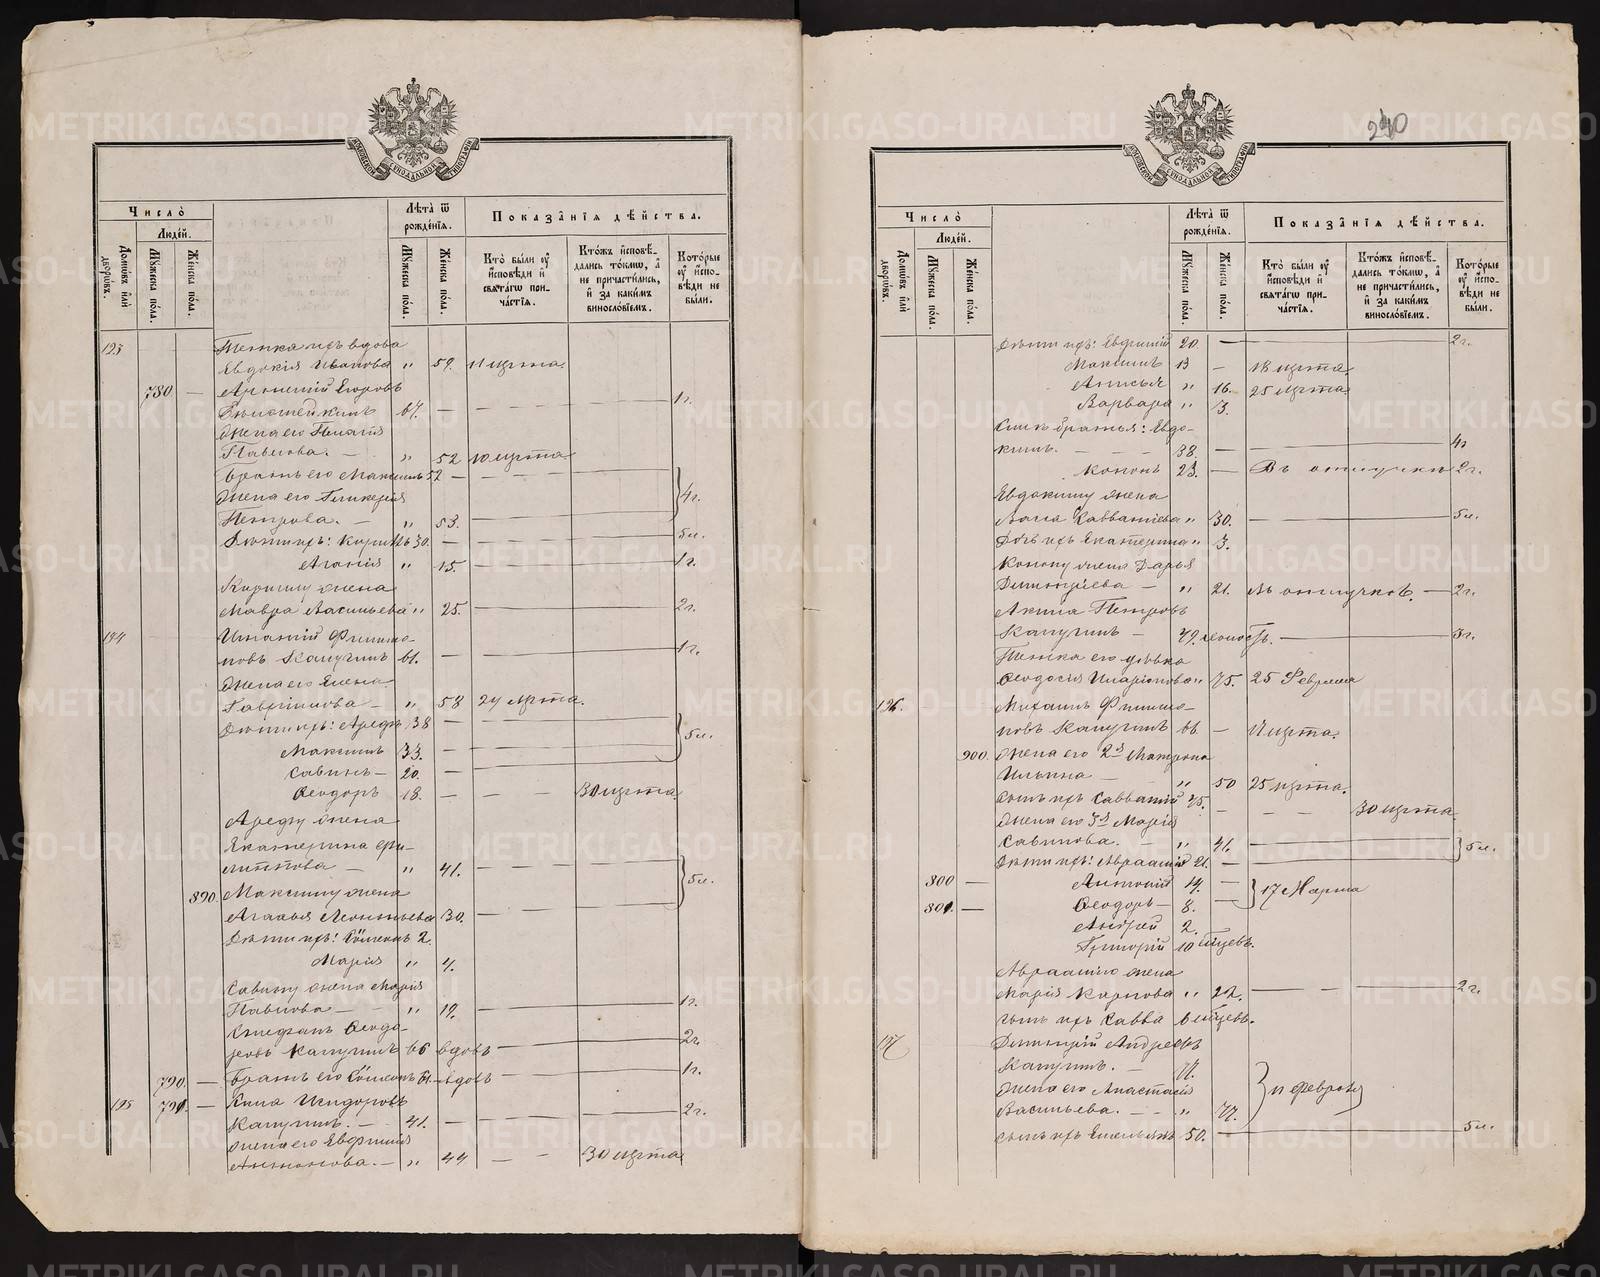 METRIKI.GASO-URAL.RU
Число
Людей.
Домовъ или дворовъ.
Мужеска пола.
Женска пола.
Лѣта ѿ рожденія.
Мужеска пола.
Женска пола.
Показанія дѣйства.
Кто были оу исповѣди и свѧтагѡ причастія.
Ктожъ исповѣдались токмѡ, а не причастились, и за какимъ винословіемъ.
Которые оу исповѣди не были.
193 Тетка ихъ вдова
Евдокія Иванова „ 59. 11 марта.
780 — Артемій Егоровъ
67. — — — 1 г.
Жена его Пелагія
Павлова. — „ 52 10 марта
Братъ его Максимъ 52 — — —
Жена его Гликерія 4 г.
Петрова. — „ 53. —
Дѣти ихъ: Кириллъ 30. — 5 л.
Агафія „ 15. — 1 г.
Кирилу жена
Мавра Васильева „ 25. — 2 г.
194 Игнатій Филиппо-
повъ Капугинъ 61. — 1 г.
Жена его Елена
Гаврилова — „ 58 24 марта.
Дѣти ихъ: Арефа 38 —
Максимъ 33. — 5 л.
Савинъ — 20. —
Ѳеодоръ 18. — — — 30 марта.
Арефу жена
Екатерина Фи-
липпова — „ 41. —
890. Максиму жена 5 л.
Агафья Леонтьева 30. — —
Дѣти ихъ: Сѵмеонъ 2.
Марія „ 4.
Савину жена Марія
Павлова — „ 19. — 1 г.
Стефанъ Ѳеодо-
ровъ Капугинъ 66 вдовъ — 2 г.
790. — Братъ его Сѵмеонъ 61. — вдовъ — 1 г.
195 791. — Акила Исидоровъ
Капугинъ. — 41. — 2 г.
Жена его Евфимія
Антонова. — „ 44 — — 30 марта
240
Число
Людей.
Домовъ или дворовъ.
Мужеска пола.
Женска пола.
Лѣта ѿ рожденія.
Мужеска пола.
Женска пола.
Показанія дѣйства.
Кто были оу исповѣди и свѧтагѡ причастія.
Ктожъ исповѣдались токмѡ, а не причастились, и за какимъ винословіемъ.
Которые оу исповѣди не были.
Дѣти ихъ: Евфимій 20. — 2 г.
Максимъ 13 — 18 марта.
Анисья „ 16. 25 марта.
Варвара „ 3.
братья: Евдо-
кимъ. — — — 38. — 4 г
Кононъ 23. — Въ отлучкѣ 2 г.
Евдокиму жена
Васса Савватіева „ 30. — 5 л.
Дочь ихъ Екатерина „ 3.
Конону жена Дарья
Димитріева — „ 21. Въ отлучкѣ. — 2 г.
Акила Петровъ
Капугинъ — 49. холостъ. — 3 г.
Тетка его дѣвка
Ѳеодосія Иларіонова „ 75. 25 Февраля
196. Михаилъ Филиппо-
повъ Капугинъ 66. — 11 марта.
900. Жена его 2я Матрона
Ильина — „ 50 25 марта.
Сынъ ихъ Савватій 45. — — — 30 марта.
Жена его 3я Марія
Савинова. — „ 41. —
Дѣти ихъ: Авраамій 21. — 5 л.
800 — Антоній 14. —
801. — Ѳеодоръ — 8. — 17 Марта
Андрей 2.
Григорій 10 мѣсяцевъ.
Авраамію жена
Марія Карпова „ 22. — 2 г.
Сынъ ихъ Савва 6 мѣсяцевъ.
197 Димитрій Андреевъ
Капугинъ. — 77.
Жена его Анастасія 11 Февраля
Васильева. — „ 77.
Сынъ ихъ Емельянъ 50. — 5 л.